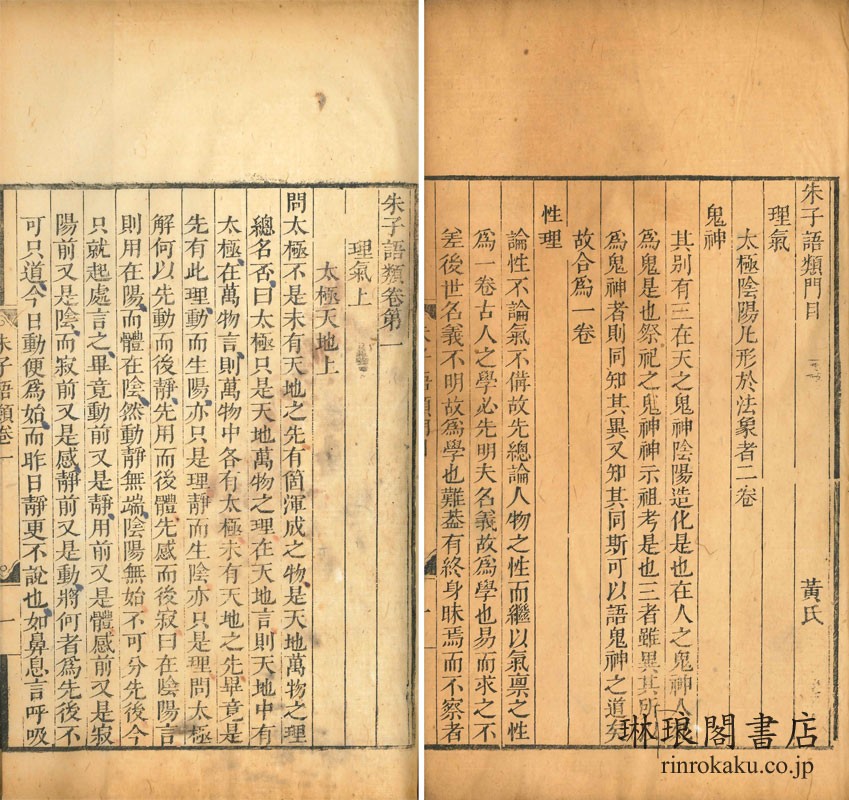 朱子語類門目 黃氏
理氣
太極陰陽凡形於法象者二卷
鬼神
其別有三在天之鬼神陰陽造化是也在人之鬼神人
爲鬼是也祭祀之鬼神神示祖考是也三者雖異其所
爲鬼神者則同知其異又知其同斯可以語鬼神之道矣
故合爲一卷
性理
論性不論氣不備故先總論人物之性而繼以氣稟之性
爲一卷古人之學必先明夫名義故爲學也易而求之不
差後世名義不明故爲學也難葢有終身昧焉而不察者
朱子語類門目
朱子語類卷第一
理氣上
太極天地上
問太極不是未有天地之先有箇渾成之物是天地萬物之理
總名否曰太極只是天地萬物之理在天地言則天地中有
太極在萬物言則萬物中各有太極未有天地之先畢竟是
先有此理動而生陽亦只是理靜而生陰亦只是理問太極
解何以先動而後靜先用而後體先感而後寂曰在陰陽言
則用在陽而體在陰然動靜無端陰陽無始不可分先後今
只就起處言之畢竟動前又是靜用前又是體感前又是寂
陽前又是陰而寂前又是感靜前又是動將何者爲先後不
可只道今日動便爲始而昨日靜更不說也如鼻息言呼吸
朱子語類卷一
一
琳琅閣書店
rinrokaku.co.jp